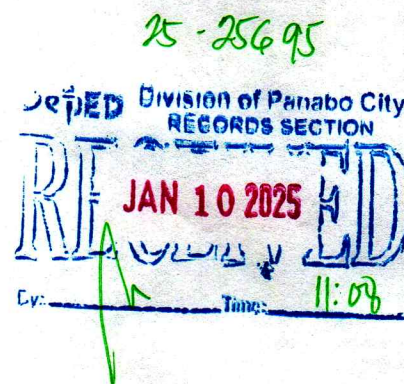 25-25695
DepED Division of Panabo City
RECORDS SECTION
RECEIVED
JAN 10 2025
By: Time: 11:08